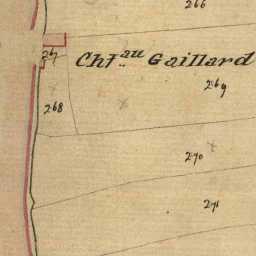 266
267
Cht.au Gaillard
269
268
270
271